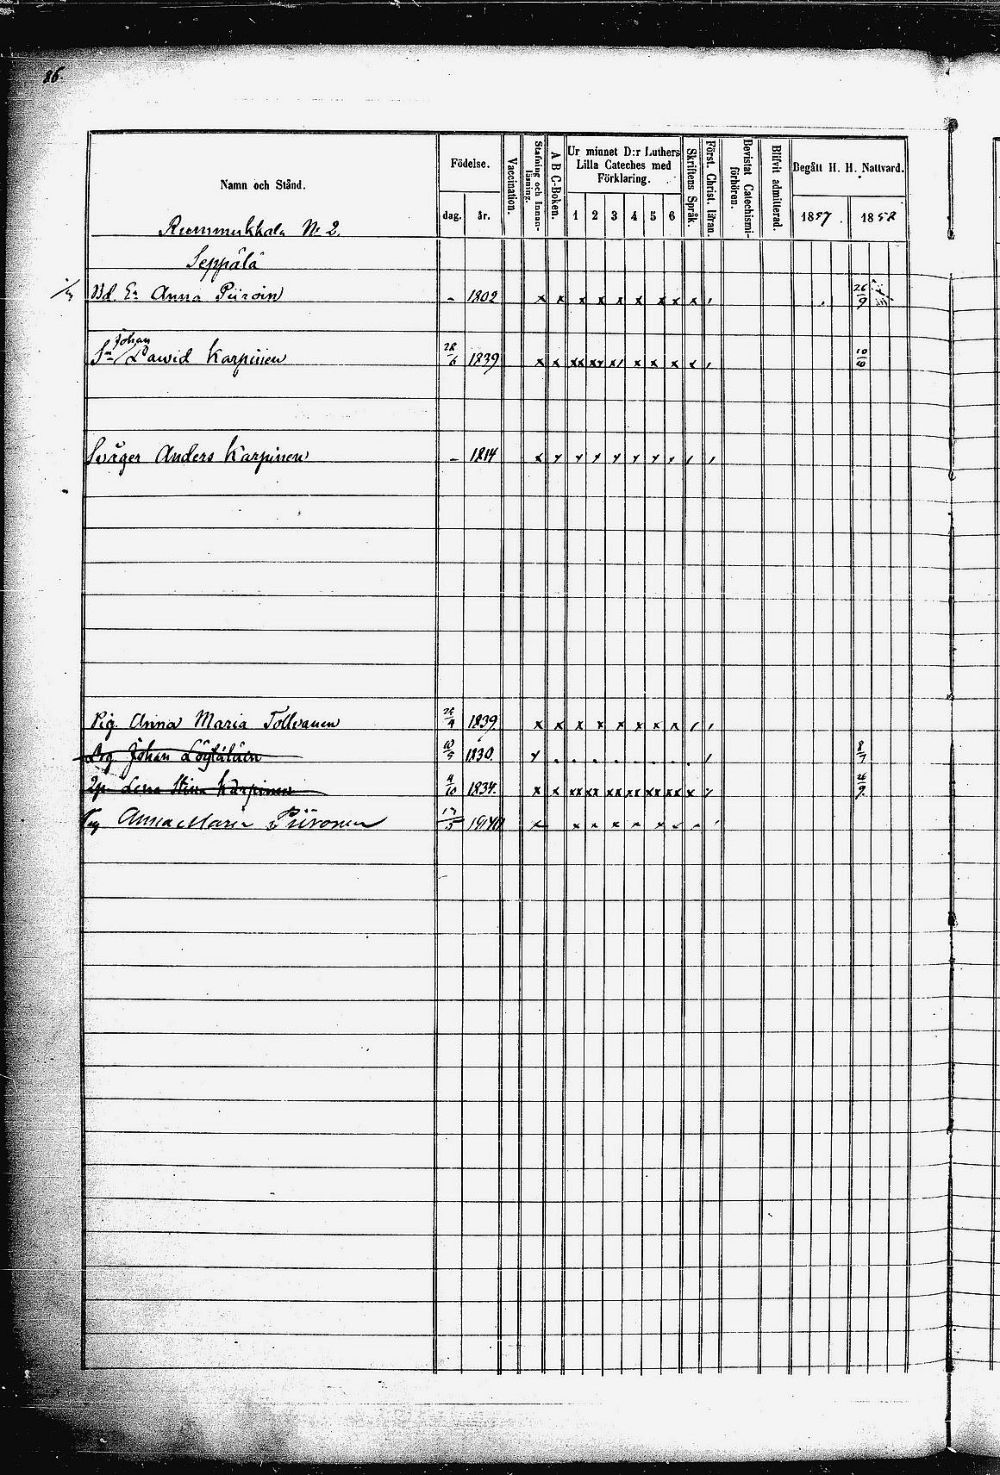 86.
Namn och Stånd.
Födelse.
dag. år.
Vaccination.
Stafning och Innan-läsning.
A B C-Boken.
Ur minnet D:r Luthers
Lilla Cateches med
Förklaring.
1 2 3 4 5 6
Skriftens Språk.
Först. Christ. läran.
Bevistat Catechismi-förhören.
Blifvit admitterad.
Begått H. H. Nattvard.
1857. 1858
Rummukkala No 2.
Seppälä
Bd. Anna Piiroin - 1802 x x x x x x x x x x 26/9
Johan
Sn Dawid Karpinen 28/6 1839 x x xx xx x x x x x 10/10
Swåger Anders Karpinen - 1814 x x x x x x x x
Pig. Anna Maria Tolvanen 1839 x x x x x x x x
Drg Johan 1830. 8/7
Lena Stina Karpinen 4/10 1834. x x xx xx xx xx xx xx x
Anna Maria Piironen